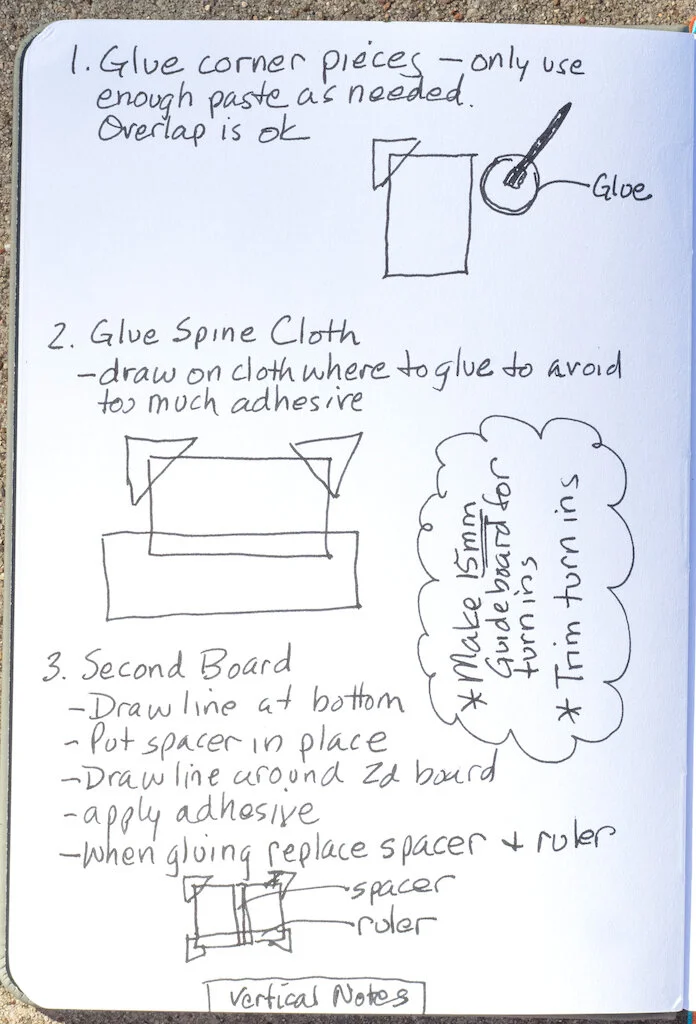 1. Glue corner pieces – only use
enough paste as needed.
Overlap is ok
Glue
2. Glue Spine Cloth
-draw on cloth where to glue to avoid
too much adhesive
* Make 15mm
Guide board for
turn ins
* Trim turn ins
3. Second Board
- Draw line at bottom
- Put spacer in place
- Draw line around 2d board
- apply adhesive
- When gluing replace spacer + ruler
spacer
ruler
Vertical Notes